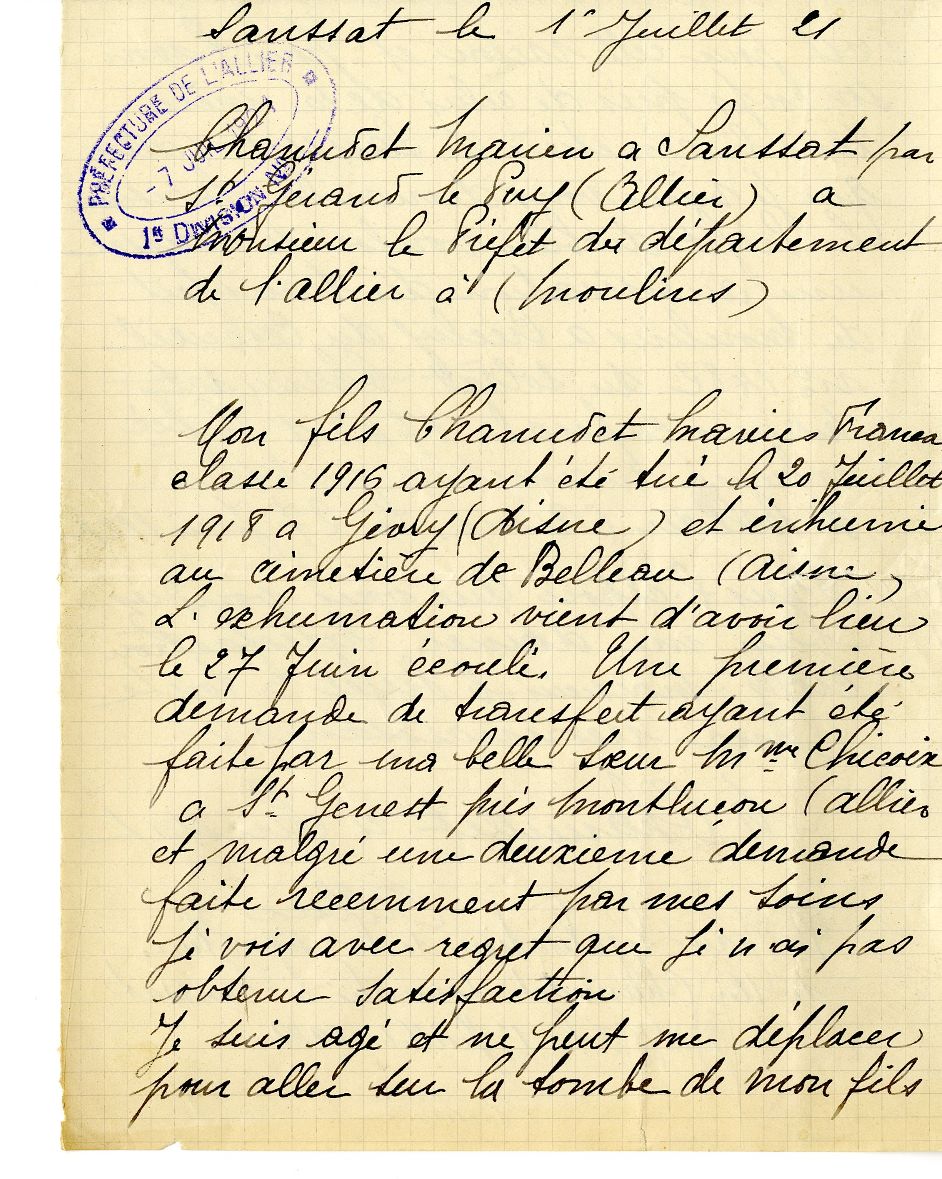 Sanssat le 1er Juillet 21
PRÉFECTURE DE L'ALLIER
-7 JUIL 1921
1re DIVISION
Chaumet Marien a Sanssat par
St Gerand le Puy (Allier) a
Monsieur le Préfet du département
de l'allier à (Moulins)
Mon fils Marius
classe 1916 ayant été tué le 20 Juillet
1918 a (Aisne) et inhumé
au cimetière de Belleau (Aisne)
L'exhumation vient d'avoir lieu
le 27 Juin écoulé. Une première
demande de transfert ayant été
faite par ma belle sœur Mme Chicoix
a St Genest près Montluçon (allier
et malgré une deuxième demande
faite recemment par mes soins
Je vois avec regret que Je n'ai pas
obtenu satisfaction
Je suis agé et ne peut me déplacer
pour aller sur la tombe de mon fils